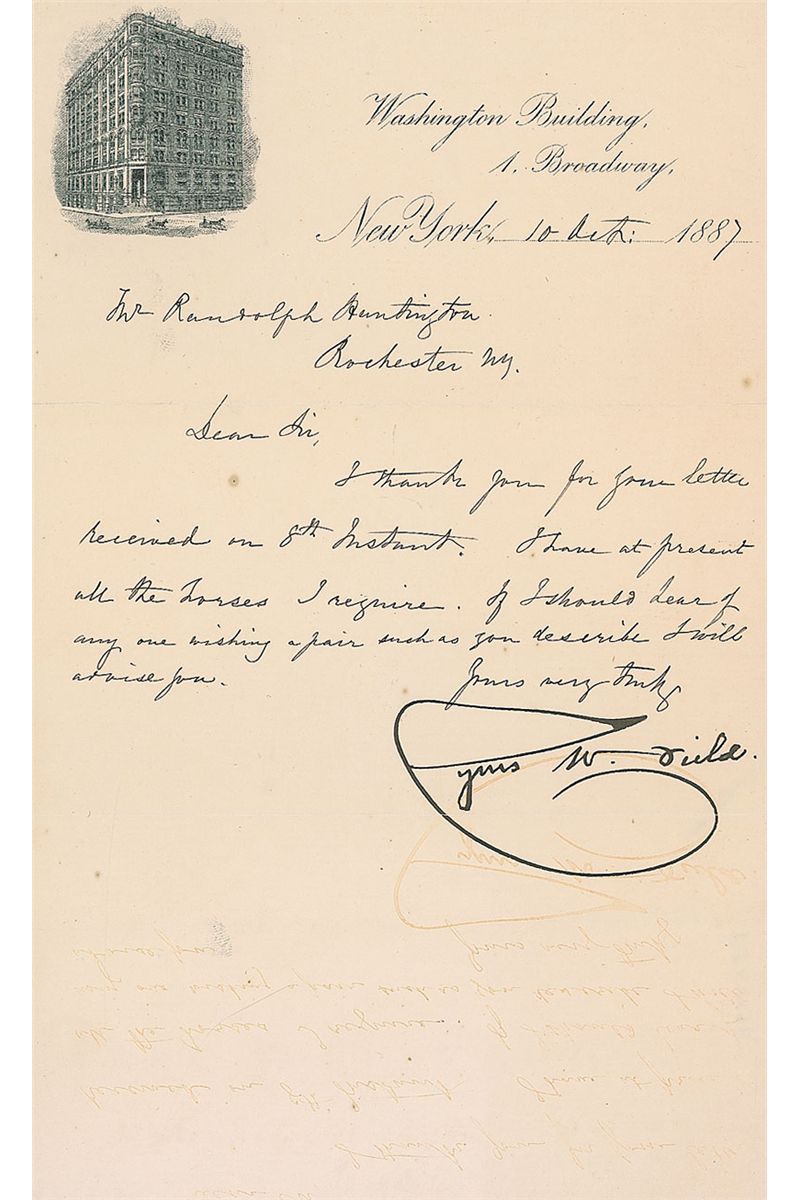 Washington Building,
1. Broadway,
New York, 10 Oct: 1887
Mr Randolph Huntington
Rochester NY.
Dear Sir,
I thank you for your letter
received on 8th Instant. I have at present
all the horses I require. If I should hear of
any one wishing a pair such as you describe I will
advise you. Yours very truly,
Cyrus W. Field.